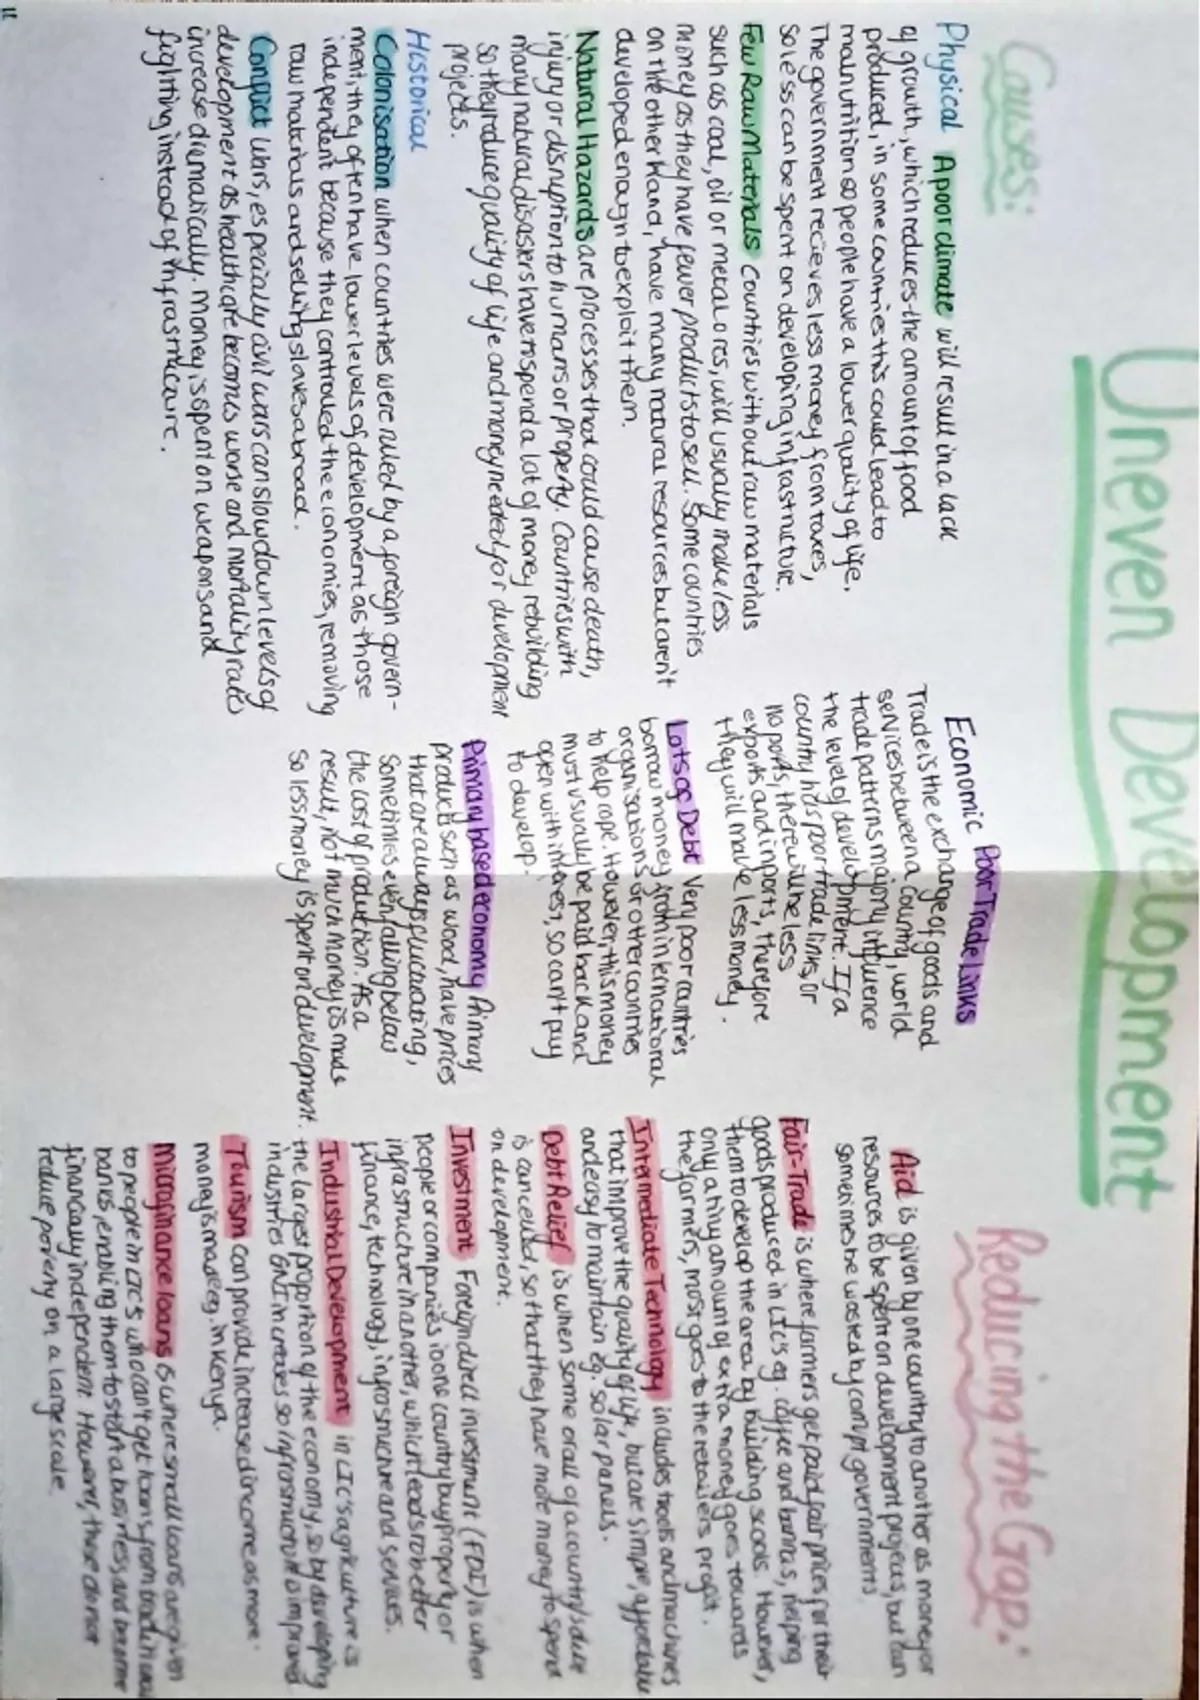 Uneven Development
Causes:
Physical A poor climate will result in a lack
of growth, which reduces the amount of food
produced, in some countries this could lead to
malnutrition so people have a lower quality of life.
The government recieves less money from taxes,
so less can be spent on developing infrastructure.
Few Raw Materials Countries without raw materials
such as coal, oil or metal ores, will usually make less
money as they have fewer products to sell. Some countries
on the other hand, have many natural resources but aren't
developed enough to exploit them.
Natural Hazards are processes that could cause death,
injury or disruption to humans or property. Countries with
many natural disasters have to spend a lot of money rebuilding
so they reduce quality of life and money needed for development
projects.
Historical
Colonisation when countries were ruled by a foreign govern-
ment, they often have lower levels of development as those
independent because they controlled the economies, removing
raw materials and selling slaves abroad.
Conflict Wars, especially civil wars can slow down levels of
development as healthcare becomes worse and mortality rates
increase dramatically. Money is spent on weapons and
fighting instead of infrastructure.
Economic Poor Trade Links
Trade is the exchange of goods and
services between a country, world
trade patterns majorly influence
the level of development. If a
country has poor trade links, or
no ports, there will be less
exports and inports, therefore
they will make less money.
Lots of Debt Very poor countries
borrow money from international
organisations or other countries
to help cope. However, this money
must usually be paid back and
open with interest, so can't pay
to develop.
Primary based economy Primary
products such as wood, have prices
that are always fluctuating,
sometimes even falling below
the cost of production. As a
result, not much money is made
so less money is spent on development.
Reducing the Gap:
Aid is given by one country to another as money or
resources to be spent on development projects, but can
sometimes be wasted by corrupt governments
Fair-Trade is where farmers get paid fair prices for their
goods produced in LIC's eg. coffee and bannas, helping
them to develop the area by building scools. However,
only a tiny amount of extra money goes towards
the farmers, most goes to the retailers profit.
Intermediate Technology includes tools and machines
that improve the quality of life, but are simple, affordable
and easy to maintain eg. solar panels.
Debt Relief is when some or all of a country's due
is cancelled, so that they have more money to spend
on development.
Investment Foreign direct investment (FDI) is when
people or companies in one country buy property or
infrastructure in another, which leads to better
finance, technology, infrastructure and services.
Industrial Development in LIC's agriculture is
the largest proportion of the economy, so by developing
industries GNI increases so infrastructure is improved
Tourism can provide increased income as more
money is made eg. in Kenya.
Microfinance loans is where small loans are given
to people in LIC's who can't get loans from traditional
banks, enabling them to start a business and become
financially independent. However, these do not
reduce poverty on a large scale.